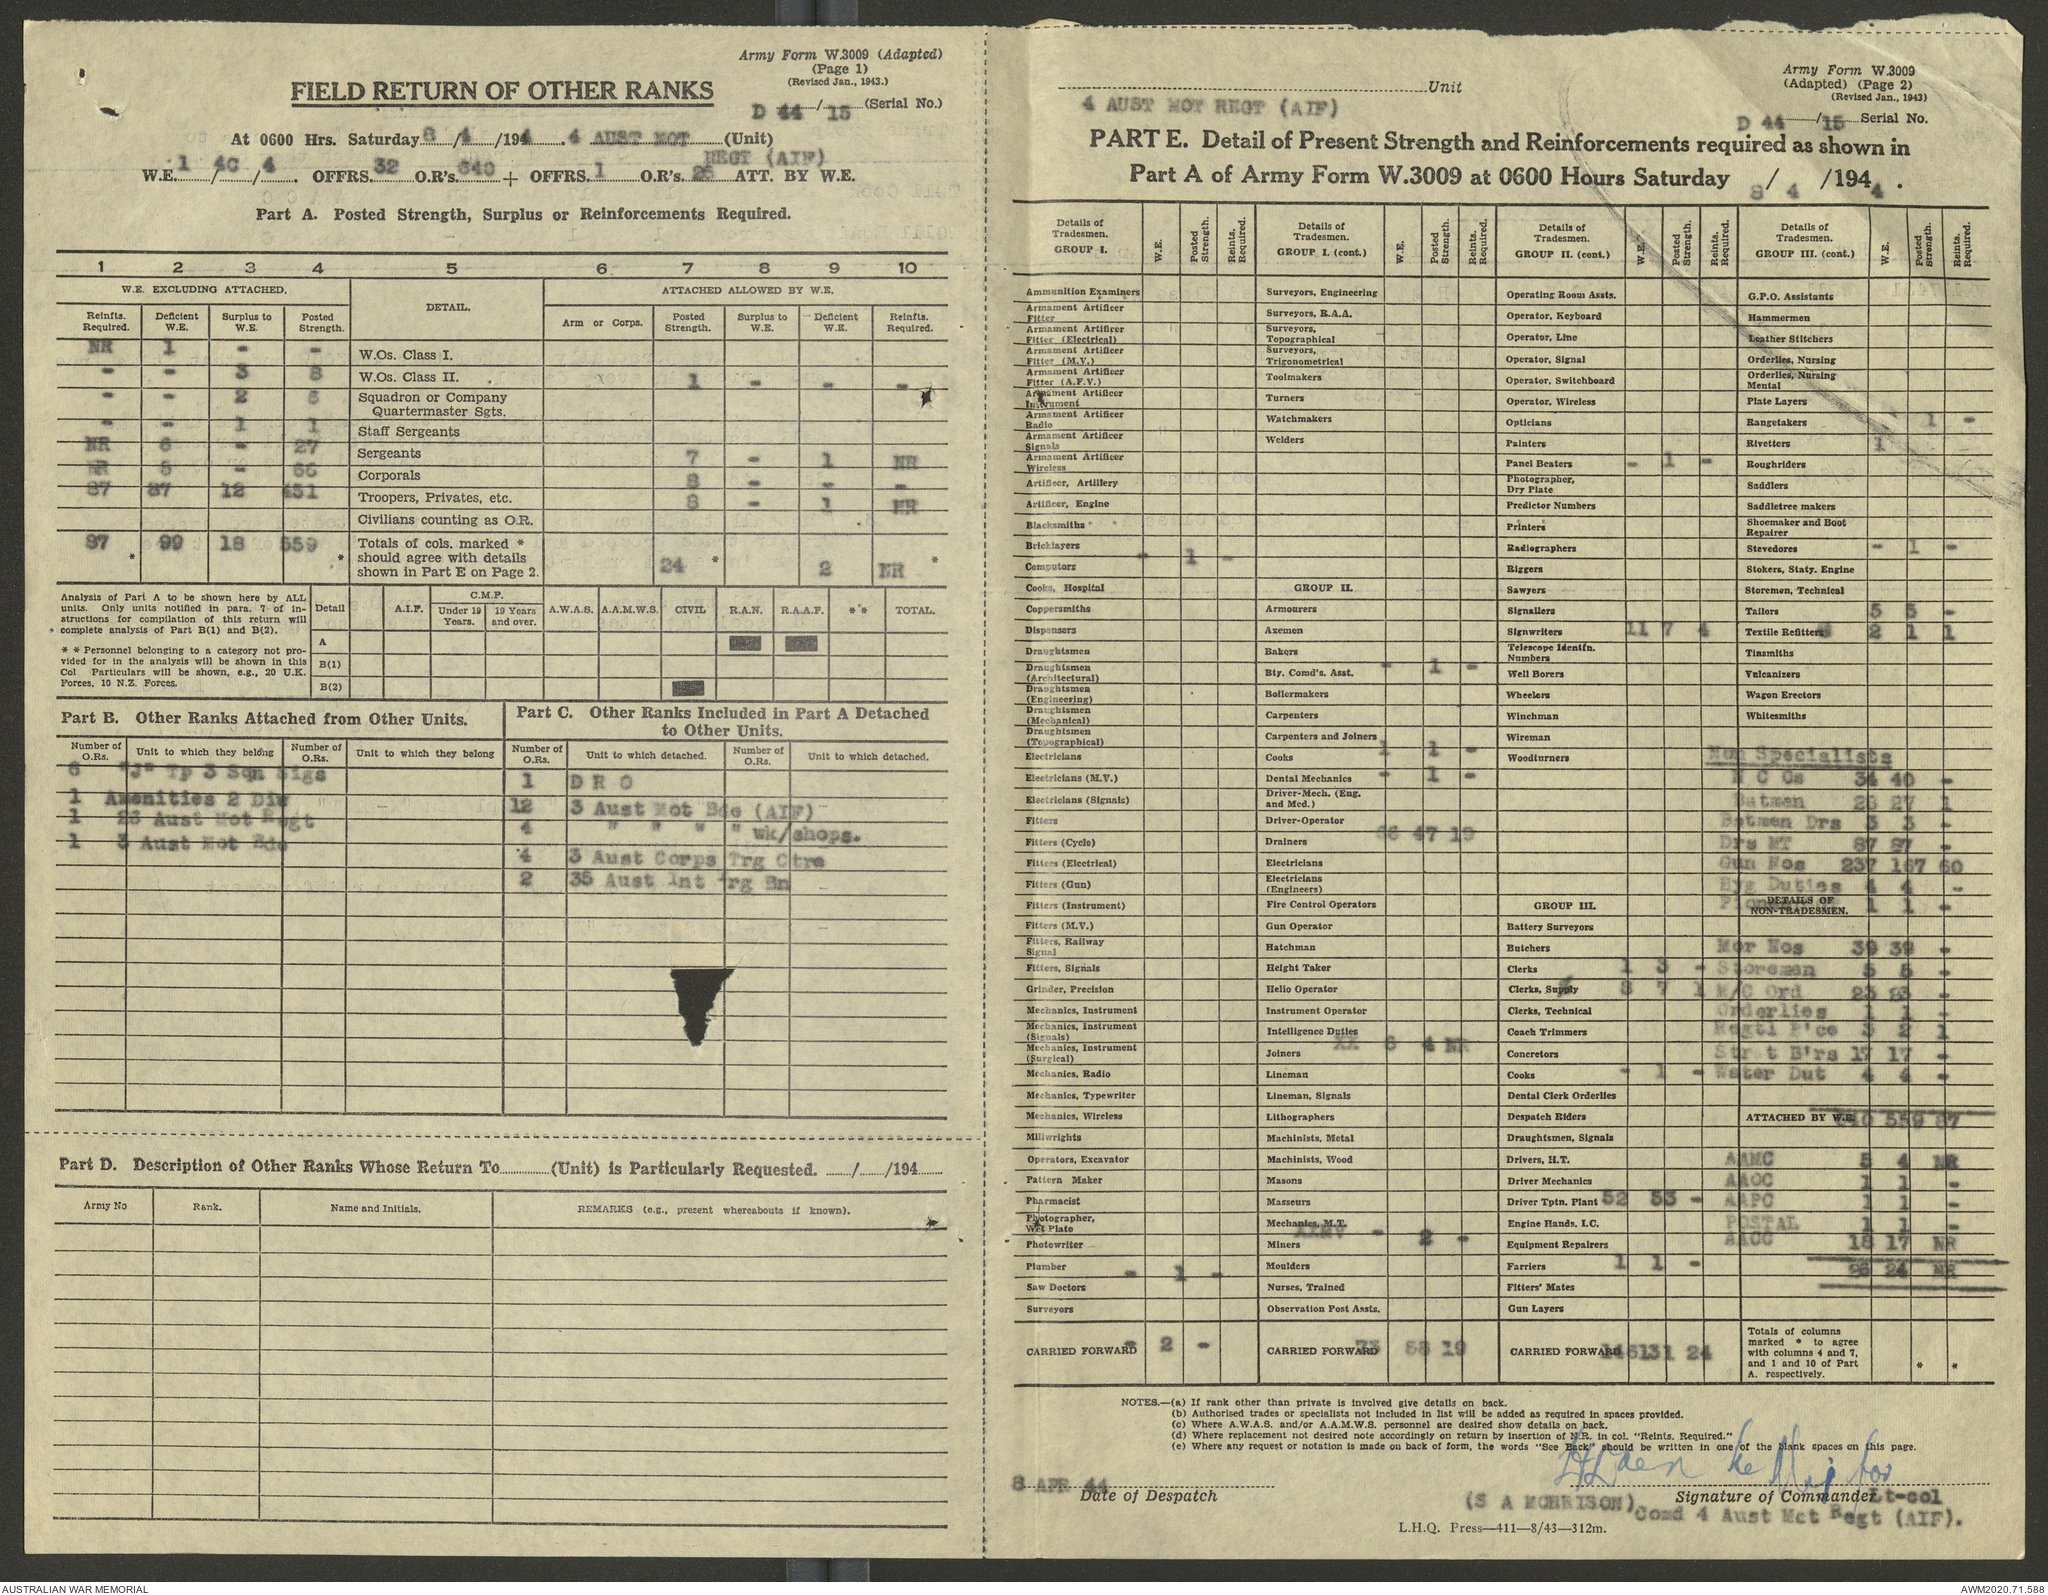 Army Form W.3009 (Adapted)
(Page 1)
(Revised Jan., 1943.)
FIELD RETURN OF OTHER RANKS
D 44/15 (Serial No.)
At 0600 Hrs. Saturday 8/4/1944. 4 AUST MOT (Unit)
REGT (AIF)
W.E. 1/4C/4. OFFRS. 32 O.R's. 640 + OFFRS. 1 O.R's. 26 ATT. BY W.E.
Part A. Posted Strength, Surplus or Reinforcements Required.
1 2 3 4 5 6 7 8 9 10
W.E. EXCLUDING ATTACHED. DETAIL. ATTACHED ALLOWED BY W.E.
Reinfts. Required. Deficient W.E. Surplus to W.E. Posted Strength. Arm or Corps. Posted Strength. Surplus to W.E. Deficient W.E. Reinfts. Required.
NR 1 - - W.Os. Class I.
- - 3 8 W.Os. Class II. 1 - - -
- - 2 Squadron or Company Quartermaster Sgts.
- - 1 1 Staff Sergeants
NR 6 - 27 Sergeants 7 - 1 NR
NR 5 - 66 Corporals 8 - - -
87 87 12 451 Troopers, Privates, etc. 8 - 1 NR
Civilians counting as O.R.
87 * 99 18 559 * Totals of cols. marked * should agree with details shown in Part E on Page 2. 24 * 2 NR *
Analysis of Part A to be shown here by ALL units. Only units notified in para. 7 of instructions for compilation of this return will complete analysis of Part B(1) and B(2).
* * Personnel belonging to a category not provided for in the analysis will be shown in this Col Particulars will be shown, e.g., 20 U.K. Forces, 10 N.Z. Forces.
Detail A.I.F. C.M.F. Under 19 Years. 19 Years and over. A.W.A.S. A.A.M.W.S. CIVIL R.A.N. R.A.A.F. * * TOTAL.
A
B(1)
B(2)
Part B. Other Ranks Attached from Other Units.
Number of O.Rs. Unit to which they belong Number of O.Rs. Unit to which they belong
6 "J" Tp 3 Sqn Sigs
1 Amenities 2 Div
1 26 Aust Mot Regt
1 3 Aust Mot Bde
Part C. Other Ranks Included in Part A Detached to Other Units.
Number of O.Rs. Unit to which detached. Number of O.Rs. Unit to which detached.
1 D R O
12 3 Aust Mot Bde (AIF)
4 " " " " wk/shops.
4 3 Aust Corps Trg Ctre
2 35 Aust Int Trg Bn
Part D. Description of Other Ranks Whose Return To (Unit) is Particularly Requested. / /194
Army No Rank. Name and Initials. REMARKS (e.g., present whereabouts if known).
Unit
4 AUST MOT REGT (AIF)
Army Form W.3009
(Adapted) (Page 2)
(Revised Jan., 1943)
D 44/15 Serial No.
PART E. Detail of Present Strength and Reinforcements required as shown in
Part A of Army Form W.3009 at 0600 Hours Saturday 8/4/1944.
Details of Tradesmen. GROUP I. W.E. Posted Strength. Reints. Required.
Ammunition Examiners
Armament Artificer Fitter
Armament Artificer Fitter (Electrical)
Armament Artificer Fitter (M.V.)
Armament Artificer Fitter (A.F.V.)
Armament Artificer Instrument
Armament Artificer Radio
Armament Artificer Signals
Armament Artificer Wireless
Artificer, Artillery
Artificer, Engine
Blacksmiths
Bricklayers
Computors - 1 -
Cooks, Hospital
Coppersmiths
Dispensers
Draughtsmen
Draughtsmen (Architectural)
Draughtsmen (Engineering)
Draughtsmen (Mechanical)
Draughtsmen (Topographical)
Electricians
Electricians (M.V.)
Electricians (Signals)
Fitters
Fitters (Cycle)
Fitters (Electrical)
Fitters (Gun)
Fitters (Instrument)
Fitters (M.V.)
Fitters, Railway Signal
Fitters, Signals
Grinder, Precision
Mechanics, Instrument
Mechanics, Instrument (Signals)
Mechanics, Instrument (Surgical)
Mechanics, Radio
Mechanics, Typewriter
Mechanics, Wireless
Millwrights
Operators, Excavator
Pattern Maker
Pharmacist
Photographer, Wet Plate
Photowriter
Plumber - 1 -
Saw Doctors
Surveyors
CARRIED FORWARD - 2 -
Details of Tradesmen. GROUP I. (cont.) W.E. Posted Strength. Reints. Required.
Surveyors, Engineering
Surveyors, R.A.A.
Surveyors, Topographical
Surveyors, Trigonometrical
Toolmakers
Turners
Watchmakers
Welders
GROUP II.
Armourers
Axemen
Bakers
Bty. Comd's. Asst. - 1 -
Boilermakers
Carpenters
Carpenters and Joiners
Cooks 1 1 -
Dental Mechanics - 1 -
Driver-Mech. (Eng. and Med.)
Driver-Operator
Drainers 66 47 19
Electricians
Electricians (Engineers)
Fire Control Operators
Gun Operator
Hatchman
Height Taker
Helio Operator
Instrument Operator
Intelligence Duties
Joiners XX 6 4 NR
Lineman
Lineman, Signals
Lithographers
Machinists, Metal
Machinists, Wood
Masons
Masseurs
Mechanics, M.T.
Miners - 2 -
Moulders
Nurses, Trained
Observation Post Assts.
CARRIED FORWARD 73 58 19
Details of Tradesmen. GROUP II. (cont.) W.E. Posted Strength. Reints. Required.
Operating Room Assts.
Operator, Keyboard
Operator, Line
Operator, Signal
Operator, Switchboard
Operator, Wireless
Opticians
Painters
Panel Beaters - 1 -
Photographer, Dry Plate
Predictor Numbers
Printers
Radiographers
Riggers
Sawyers
Signallers
Signwriters 11 7 4
Telescope Identfn. Numbers
Well Borers
Wheelers
Winchman
Wireman
Woodturners
GROUP III.
Battery Surveyors
Butchers
Clerks 1 3 -
Clerks, Supply 8 7 1
Clerks, Technical
Coach Trimmers
Concretors
Cooks - 1 -
Dental Clerk Orderlies
Despatch Riders
Draughtsmen, Signals
Drivers, H.T.
Driver Mechanics
Driver Tptn. Plant 52 53 -
Engine Hands, I.C.
Equipment Repairers
Farriers 1 1 -
Fitters' Mates
Gun Layers
CARRIED FORWARD 146 131 24
Details of Tradesmen. GROUP III. (cont.) W.E. Posted Strength. Reints. Required.
G.P.O. Assistants
Hammermen
Leather Stitchers
Orderlies, Nursing
Orderlies, Nursing Mental
Plate Layers
Rangetakers 1 -
Rivetters 1
Roughriders
Saddlers
Saddletree makers
Shoemaker and Boot Repairer
Stevedores - 1 -
Stokers, Staty. Engine
Storemen, Technical
Tailors 5 5 -
Textile Refitters 2 1 1
Tinsmiths
Vulcanizers
Wagon Erectors
Whitesmiths
Non Specialists
N C Os 34 40 -
Batmen 27 1
Batmen Drs 3 3 -
Drs MT 87 87 -
Gun Nos 237 167 60
Hyg Duties 4 4 -
DETAILS OF NON-TRADESMEN. 1 1 -
Mor Nos 39 39 -
Storemen 5 5 -
M/C Ord 23 23 -
Orderlies 1 1 -
Regtl P'ce 3 2 1
Stret B'rs 17 17 -
Water Dut 4 4 -
ATTACHED BY W.E. 640 559 87
AAMC 5 4 NR
AAOC 1 1 -
AAPC 1 1 -
POSTAL 1 1 -
AACC 18 17 NR
26 24 NR
Totals of columns marked * to agree with columns 4 and 7, and 1 and 10 of Part A. respectively. * *
NOTES.—(a) If rank other than private is involved give details on back.
(b) Authorised trades or specialists not included in list will be added as required in spaces provided.
(c) Where A.W.A.S. and/or A.A.M.W.S. personnel are desired show details on back.
(d) Where replacement not desired note accordingly on return by insertion of N.R. in col. "Reints. Required."
(e) Where any request or notation is made on back of form, the words "See Back" should be written in one of the blank spaces on this page.
8 APR 44
Date of Despatch
Maj for
(S A MORRISON) Signature of Commander Lt-col
Comd 4 Aust Mot Regt (AIF).
L.H.Q. Press—411—8/43—312m.
AUSTRALIAN WAR MEMORIAL
AWM2020.71.588